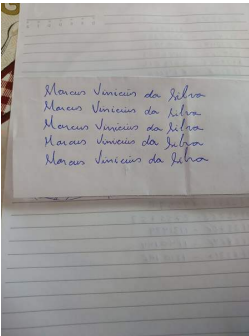 Marcus Vinicius da Silva
Marcus Vinicius da Silva
Marcus Vinicius da Silva
Marcus Vinicius da Silva
Marcus Vinicius da Silva